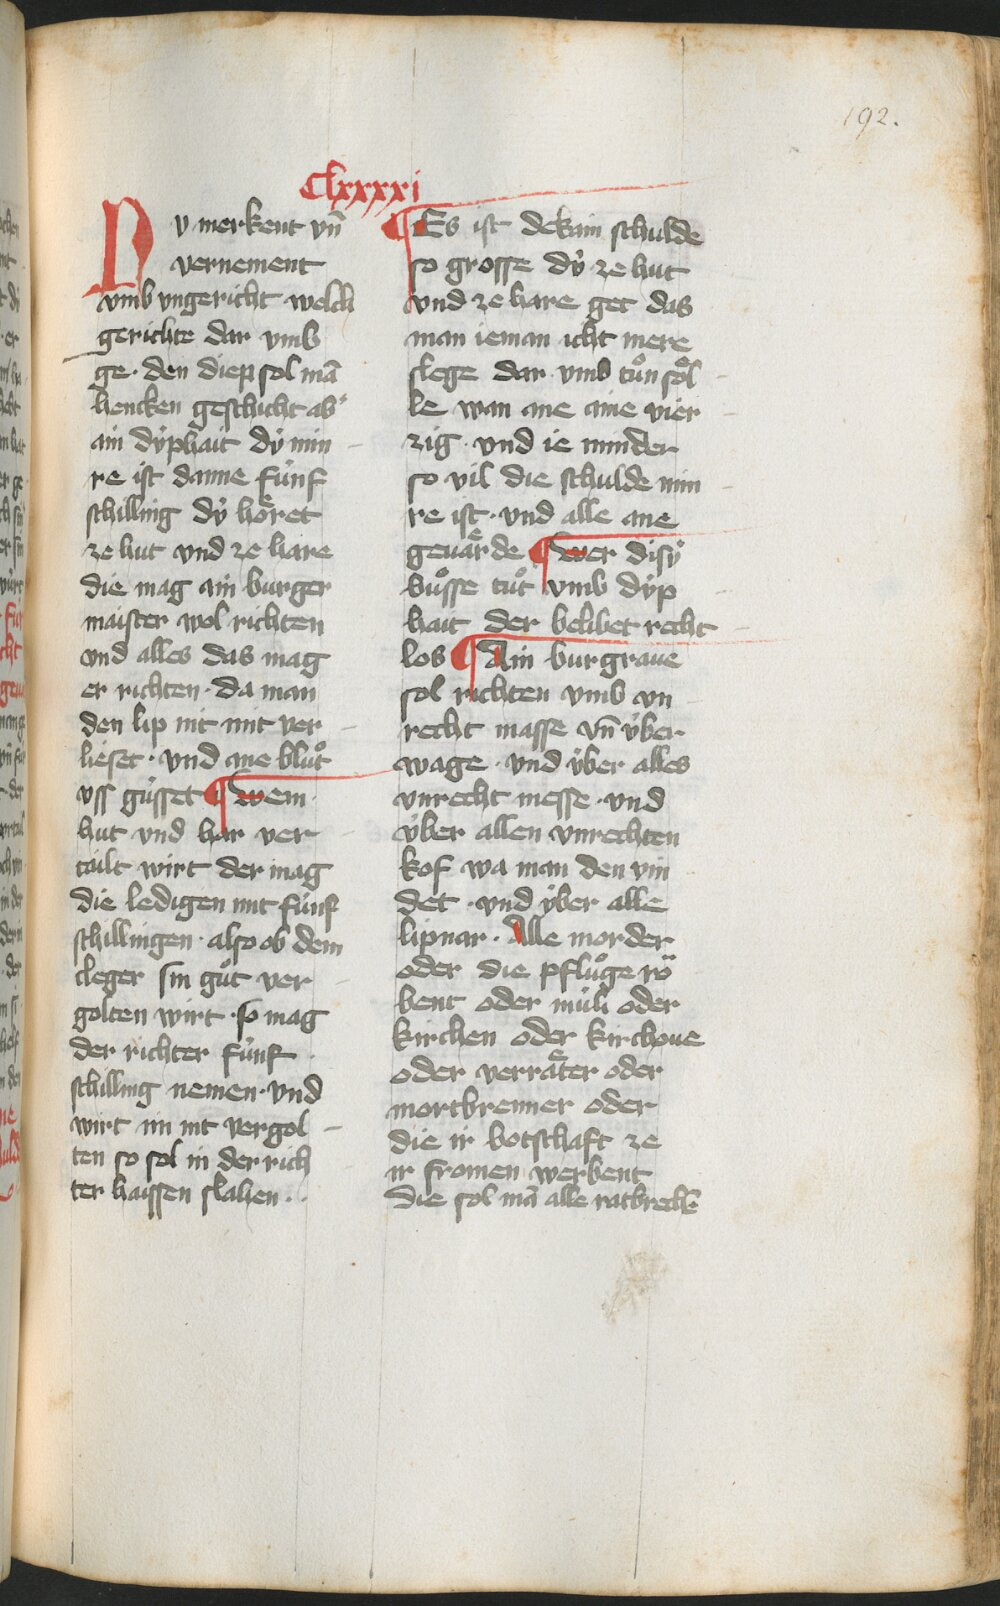 192.
Clxxxxi
Nv merkent vn̄
vernement
vmb vngericht welch
gerichte dar vmb
ge. den diep sol mā
hencken geschicht ab
ain dÿphait dÿ min
re ist danne fúnf
schilling dÿ hoͤret
ze hut vnd ze hare
die mag ain burger
maister wol richten
vnd alles das mag
er richten. da man
den lip nit mit ver
lieset. vnd ane bluͦt
vss gússet ¶ wem
hut vnd har ver
tailt wirt der mag
die ledigen mit fúnf
schillingen. also ob dem
cleger sin guͦt ver
golten wirt. so mag
der richter fúnf
schilling nemen. vnd
wirt im nit vergol
ten so sol in der rich
ter haissen slahen..
¶ Es ist dekain schulde
so grosse dÿ ze hut
vnd ze hare get das
man ieman icht mere
slege dar vmb tuͦn soͤl
le wan ane aine vier
zig. vnd ie minder
so vil die schulde min
re ist. vnd alle ane
geuaͤrde ¶ wer disÿ
buͦsse tuͦt vmb dÿp
hait der belibet recht
los ¶ Ain burgraue
sol richten vmb vn
recht masse vn̄ v́ber
wage. vnd v́ber alles
vnrecht messe. vnd
v́ber allen vnrechten
kof wa man den vin
det. vnd v́ber alle
lipnar. Alle morder
oder die pfluͦge roͮ
bent oder múli oder
kirchen oder kirchoue
oder verraͤter oder
mortbrenner oder
die ir botschaft ze
ir fromen werbent
die sol mā alle ratbrechē